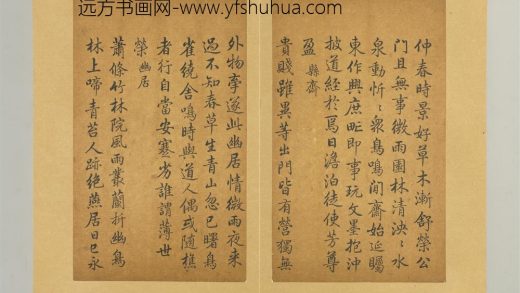 远方书画网-www.yfshuhua.com
仲春時景好草木漸舒榮公
門且無事微雨園林清泱〻水
泉動忻〻衆鳥鳴閒齋始延矚
東作興庶甿即事玩文墨抱沖
披道經於焉日澹泊徒使芳尊
盈 縣齋
貴賤雖異等出門皆有營獨無
外物牽遂此幽居情微雨夜來
過不知春草生青山忽已曙鳥
雀繞舍鳴時與道人偶或隨樵
者行自當安蹇劣誰謂薄世
榮 幽居
蕭條竹林院風雨叢蘭折幽鳥
林上啼青苔人跡絶燕居日已永